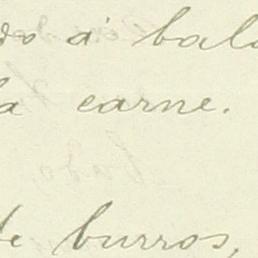 do á bala
la carne.
de burros,